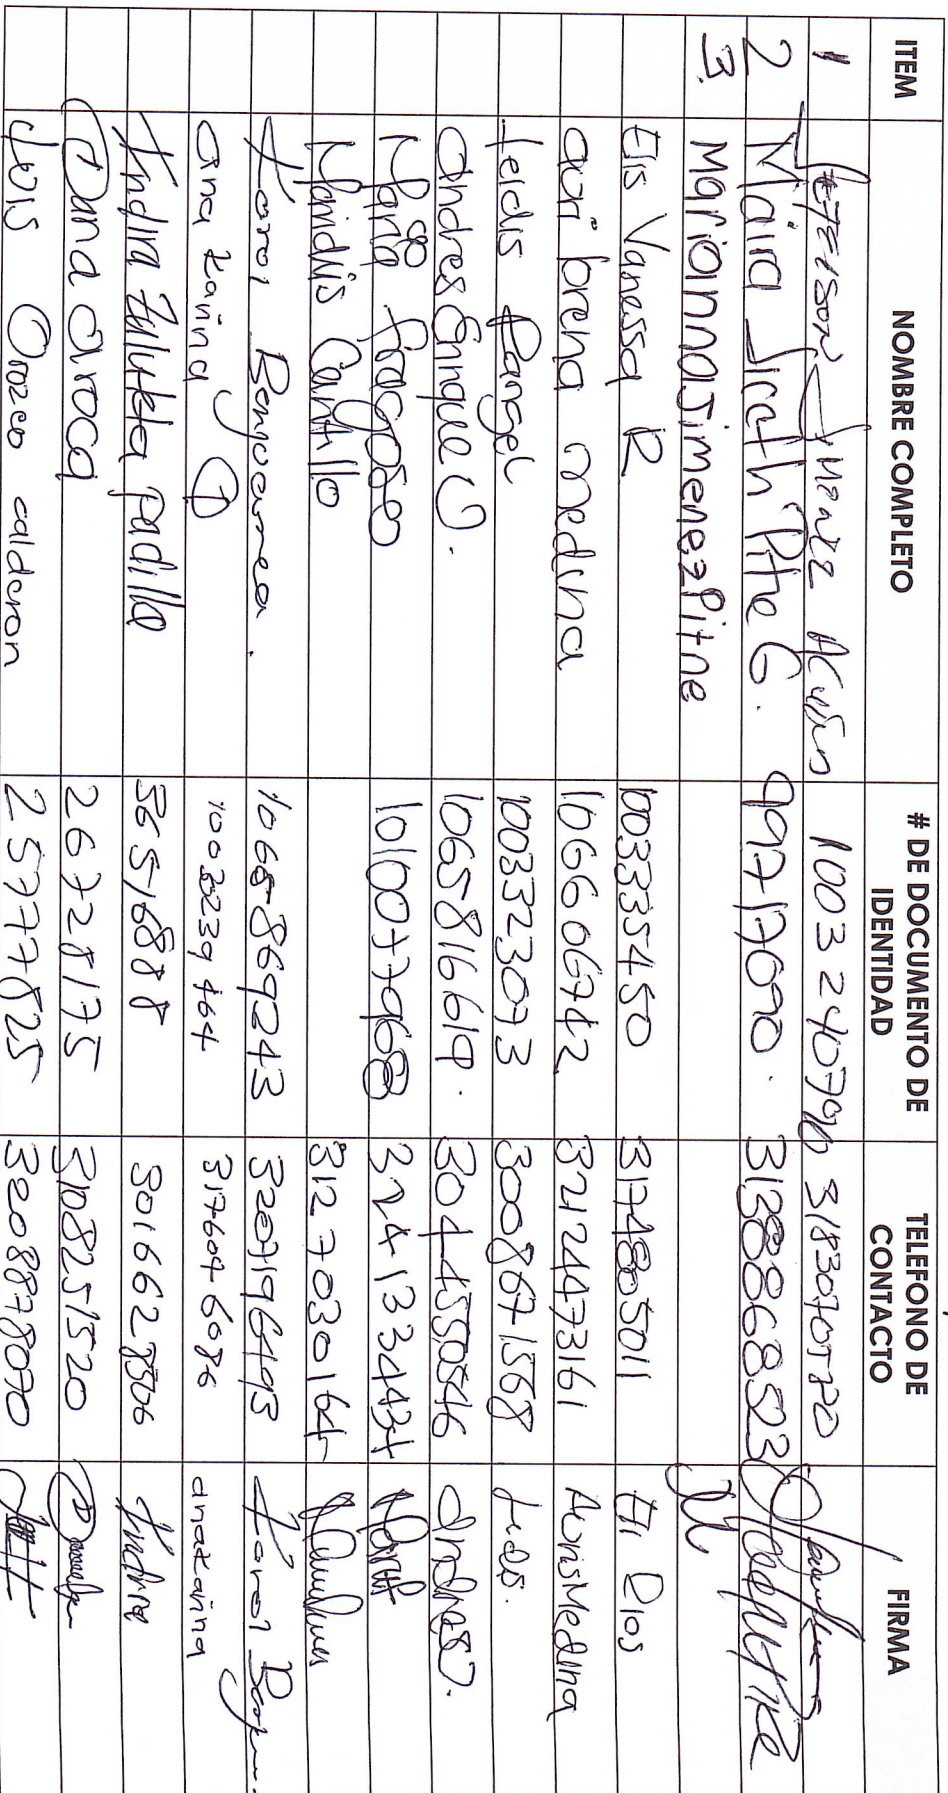 ITEM NOMBRE COMPLETO # DE DOCUMENTO DE IDENTIDAD TELEFONO DE CONTACTO FIRMA
1 1003240796 3183070580
2 Maira Sirath Pitre G. 99717090. 3138868523
3. Mariannajimenezpitre
Elis Vanessa R 1003335450 3174805011 Eli Rios
Auri brena medina 1066606742 3212473161 AurisMedina
Leidis Rangel 1003323073 3008671568 Leidis.
Andres Enrique U. 1065816619. 3044550546 Andres U.
Maria fragoso 1010077968 3241334434 Maria
Maridis Cantillo 3127030164
Karol Benjumea. 1065869243 3207196493 Karol
ana karina 1003239464 3176046086 anakarina
Indira Zulueta padilla 56551688 Indira
Dana Aroca 26728175 3108251520
Luis Orozco calderon 25777825 3208878070